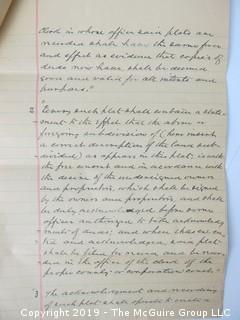 book in whose office said plats are
recorded shall have the same force
and effect as evidence that copies of
deeds now have, shall be deemed
good and valid for all intents and
purposes."
2 "Every such plat shall contain a state-
ment to the effect that the above or
foregoing subdivision of (here insert
a correct description of the land sub-
divided) as appears in this plat, is with
the free consent and in accordance with
the desire of the undersigned owners
and proprietors, which shall be signed
by the owners and proprietors, and shall
be duly acknowledged before some
officer authorized to take acknowledg-
ments of deeds; and when thus
and acknowledged, said plat
shall be filed for record and be record-
ed in the office of the clerk of the
proper county or corporation court."
3 The acknowledgment and recording
of such plat shall operate to
Copyright 2019 - The McGuire Group, LLC